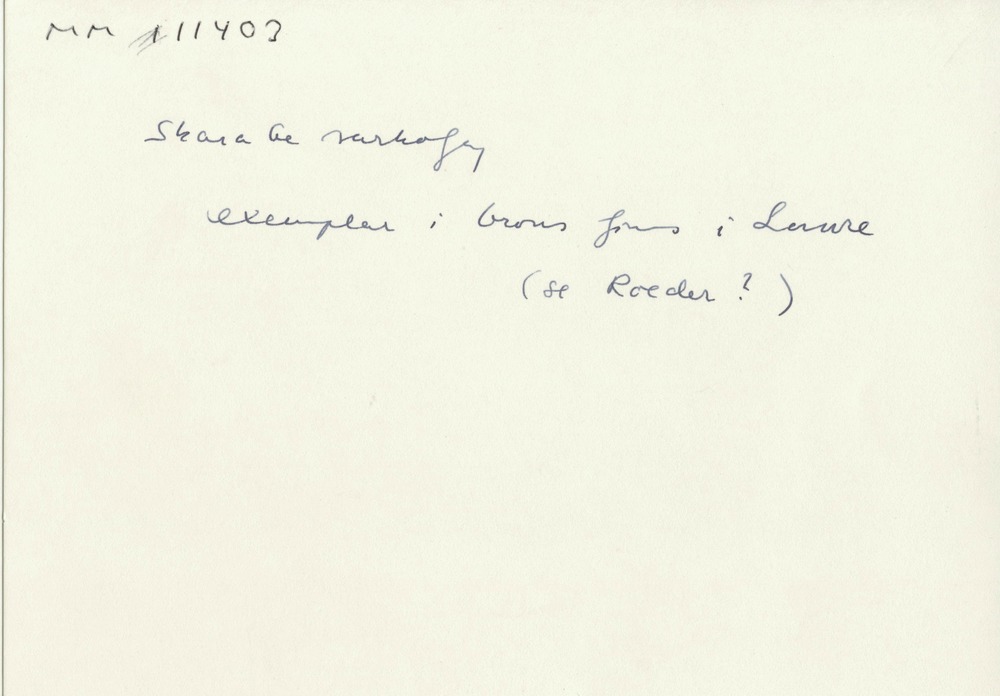 MM 11403
Skarabé sarkofag
exemplar i brons finns i Louvre
(se Roeder?)